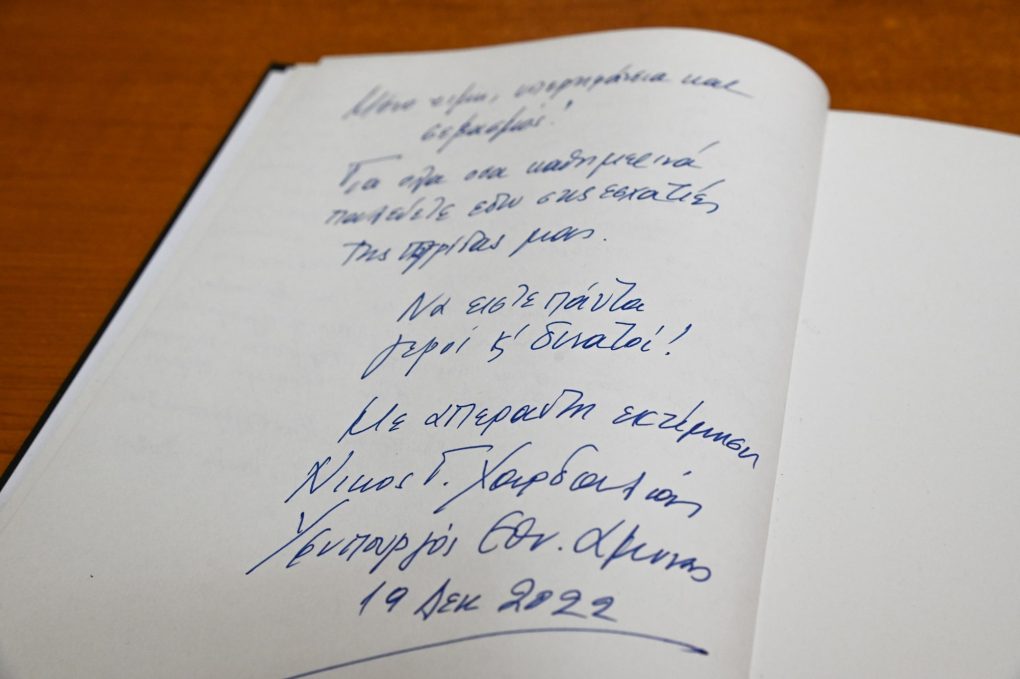 Μόνο τιμή, υπερηφάνεια και
σεβασμός!
Για όλα όσα καθημερινά
παλεύετε εδώ στις εσχατιές
της πατρίδας μας.
Να είστε πάντα
γεροί κ' δυνατοί!
Με απέραντη εκτίμηση
Νίκος Γ. Χαρδαλιάς
Υφυπουργός Εθν. Άμυνας
19 Δεκ 2022